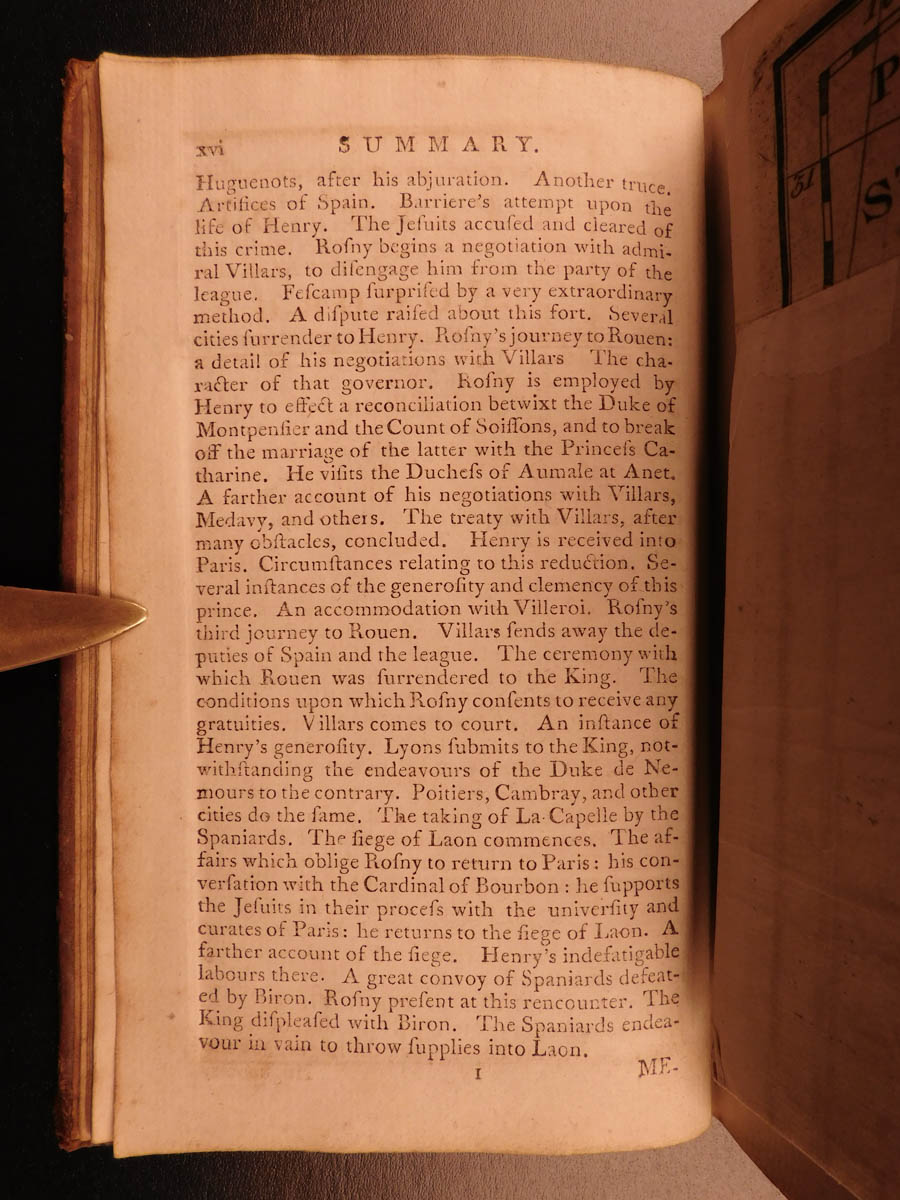 xvi SUMMARY.
Huguenots, after his abjuration. Another truce.
Artifices of Spain. Barriere's attempt upon the
life of Henry. The Jeſuits accuſed and cleared of
this crime. Roſny begins a negotiation with admi-
ral Villars, to diſengage him from the party of the
league. Feſcamp ſurpriſed by a very extraordinary
method. A diſpute raiſed about this fort. Several
cities ſurrender to Henry. Roſny's journey to Rouen:
a detail of his negotiations with Villars The cha-
racter of that governor. Roſny is employed by
Henry to effect a reconciliation betwixt the Duke of
Montpenſier and the Count of Soiſſons, and to break
off the marriage of the latter with the Princeſs Ca-
tharine. He viſits the Ducheſs of Aumale at Anet.
A farther account of his negotiations with Villars,
Medavy, and others. The treaty with Villars, after
many obſtacles, concluded. Henry is received into
Paris. Circumſtances relating to this reduction. Se-
veral inſtances of the generoſity and clemency of this
prince. An accommodation with Villeroi. Roſny's
third journey to Rouen. Villars ſends away the de-
puties of Spain and the league. The ceremony with
which Rouen was ſurrendered to the King. The
conditions upon which Roſny conſents to receive any
gratuities. Villars comes to court. An inſtance of
Henry's generoſity. Lyons ſubmits to the King, not-
withſtanding the endeavours of the Duke de Ne-
mours to the contrary. Poitiers, Cambray, and other
cities do the ſame. The taking of La-Capelle by the
Spaniards. The ſiege of Laon commences. The af-
fairs which oblige Roſny to return to Paris: his con-
verſation with the Cardinal of Bourbon: he ſupports
the Jeſuits in their proceſs with the univerſity and
curates of Paris: he returns to the ſiege of Laon. A
farther account of the ſiege. Henry's indefatigable
labours there. A great convoy of Spaniards defeat-
ed by Biron. Roſny preſent at this rencounter. The
King diſpleaſed with Biron. The Spaniards endea-
vour in vain to throw ſupplies into Laon.
1 ME-
51